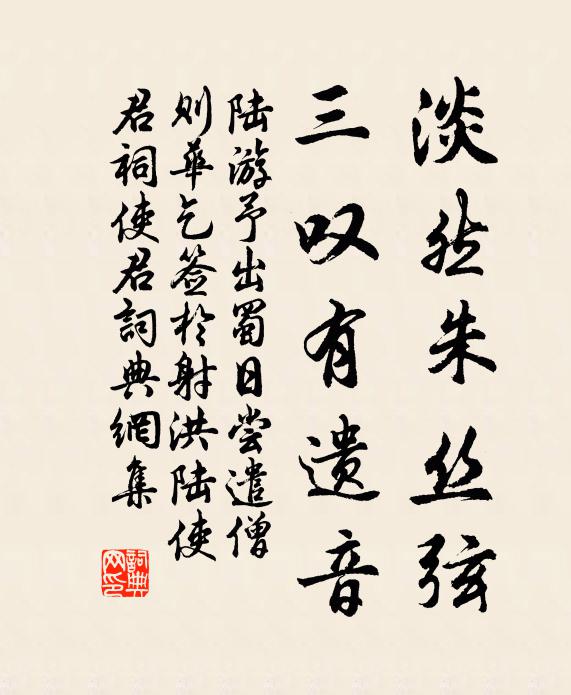 淡然朱丝弦
三叹有遗音
陆游予出蜀日尝遣僧
则华乞签於射洪陆使
君祠使君詞典網集
詞典
网印